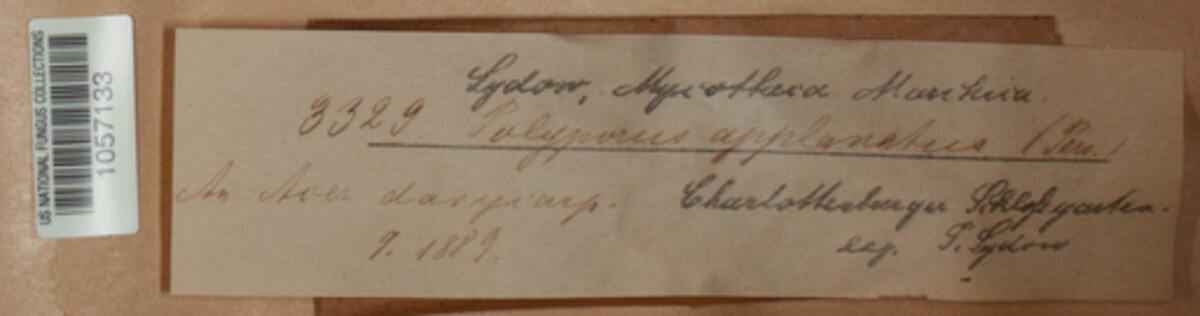 US NATIONAL FUNGUS COLLECTIONS
1057133
Sydow, Mycotheca Marchica.
3329 Polyporus applanatus (Pers.)
An Acer dasycarp. Charlottenburger Schloßgarten.
9. 1889. leg. P. Sydow